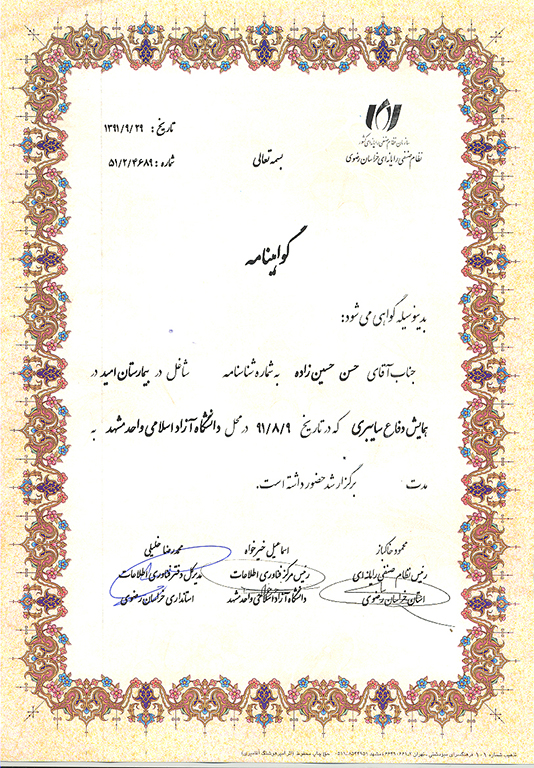 سازمان نظام صنفی رایانه‌ای کشور
نظام صنفی رایانه‌ای خراسان رضوی
تاریخ : ۱۳۹۱/۹/۲۹
شماره : ۵۱/۲/۴۶۸۹
بسمه تعالی
گواهینامه
بدینوسیله گواهی می شود:
جناب آقای حسن حسین زاده به شماره شناسنامه شاغل در بیمارستان امید در
همایش دفاع سایبری که در تاریخ ۹۱/۸/۹ در محل دانشگاه آزاد اسلامی واحد مشهد به
مدت برگزار شد حضور داشته است.
محمود خاکباز
رئیس نظام صنفی رایانه ای
استان خراسان رضوی
اسماعیل خیرخواه
رئیس مرکز فناوری اطلاعات
دانشگاه آزاد اسلامی واحد مشهد
محمدرضا خلیلی
مدیرکل دفتر فناوری اطلاعات
استانداری خراسان رضوی
تذهیب شماره ۱۰۱ فرهنگسرای میردشتی ـ تهران
حق چاپ محفوظ